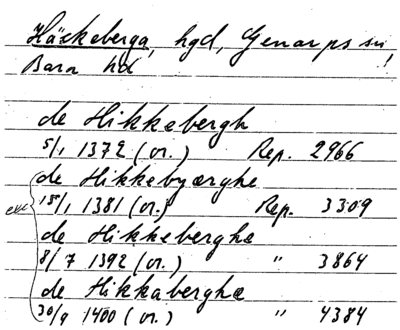 Häckeberga, hgd, Genarps sn
Bara hd !
de Hikkebergh
5/1 1372 (or.) Rep. 2966
de Hikkebyærghe
15/1 1381 (or.) Rep. 3309
de Hikkeberghæ
8/7 1392 (or.) " 3864
de Hikkaberghæ
30/9 1400 (or.) " 4384